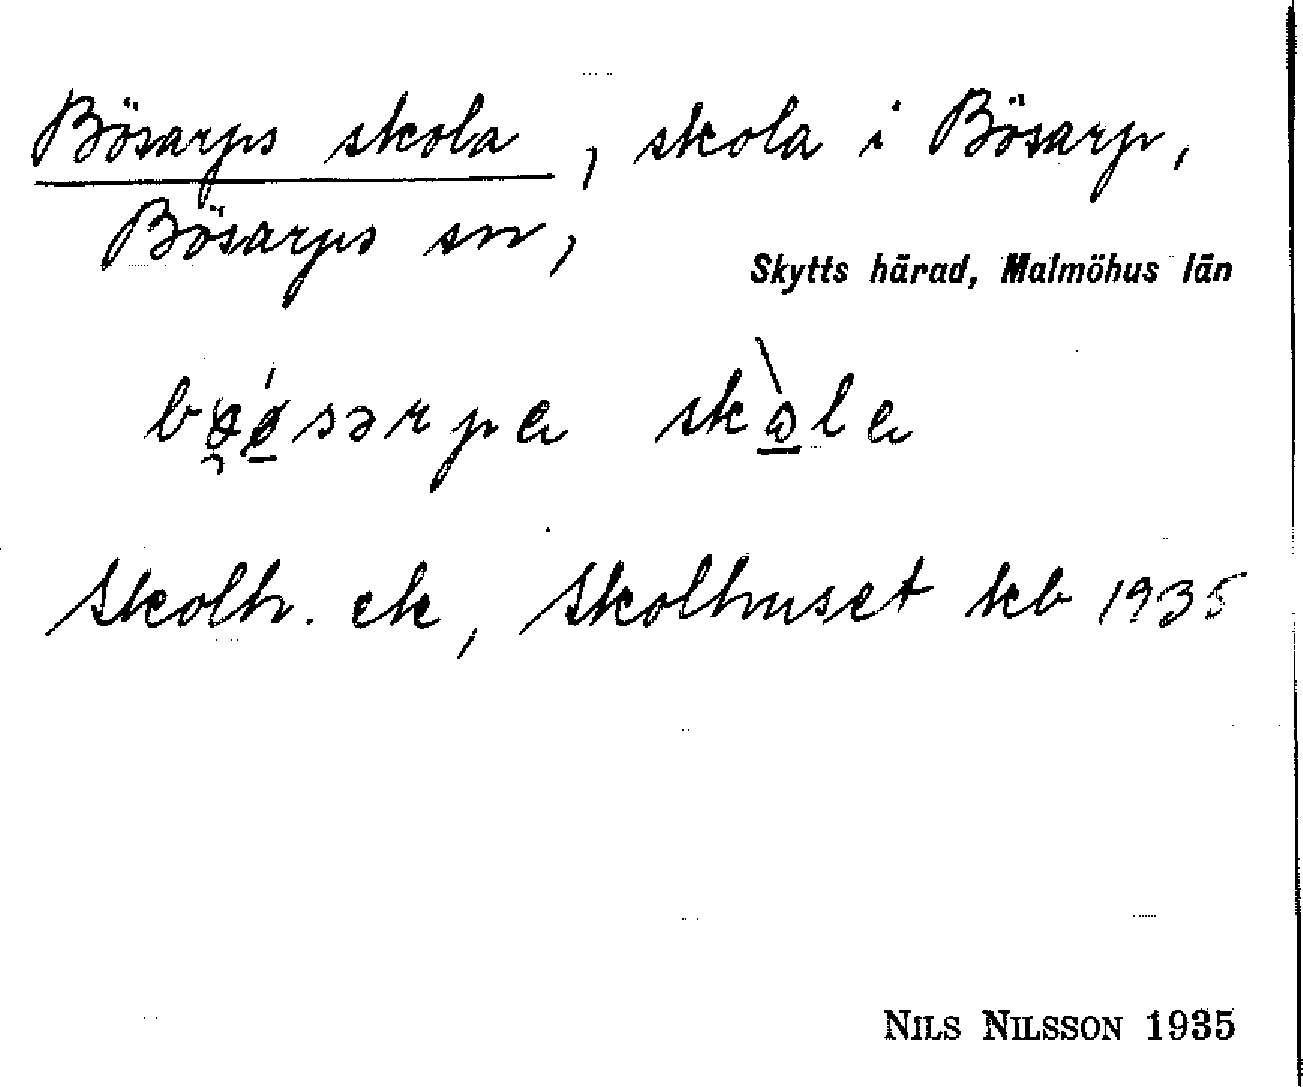 Bösarps skola, skola i Bösarp,
Bösarps sn,
Skytts härad, Malmöhus län
Skolh. ek, Skolhuset kb 1935
NILS NILSSON 1935